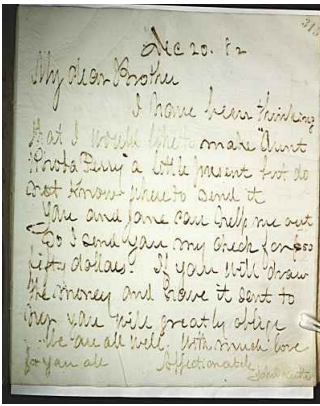 313
Dec 20. 82
My dear Brother
I have been thinking
that I would like to make "Aunt
Phoeba Perry" a little present but do
not know where to send it
You and Jane can help me out
So I send you my check for $50
fifty dollars. If you will draw
the money and have it sent to
her you will greatly oblige
We are all well. With much love
for you all Affectionately